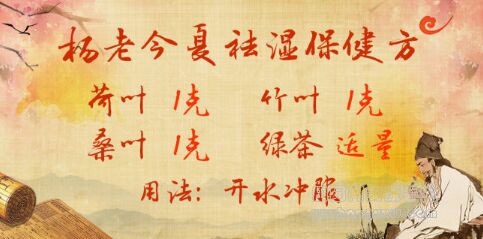 杨老今夏祛湿保健方
荷叶 1克 竹叶 1克
桑叶 1克 绿茶 适量
用法：开水冲服